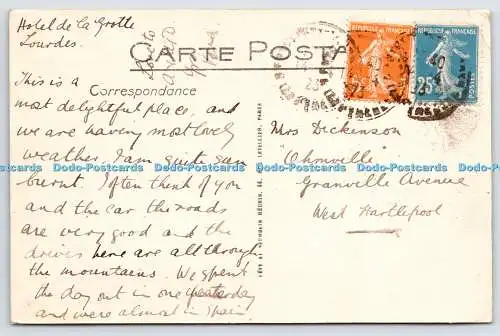 Hotel de la Grotte
Lourdes.
CARTE POSTALE
Correspondance
This is a
most delightful place, and
we are having most lovely
weather. I am quite sun
burnt. I often think of you
and the car the roads
are very good and the
drives here are all through
the mountains. We spent
the day out in one yesterday
and were almost in Spain
Mrs Dickenson
Granville Avenue
West Hartlepool
REPUBLIQUE FRANÇAISE
REPUBLIQUE FRANÇAISE
25
POSTES
Docks-Postcards Docks-Postcards Docks-Postcards